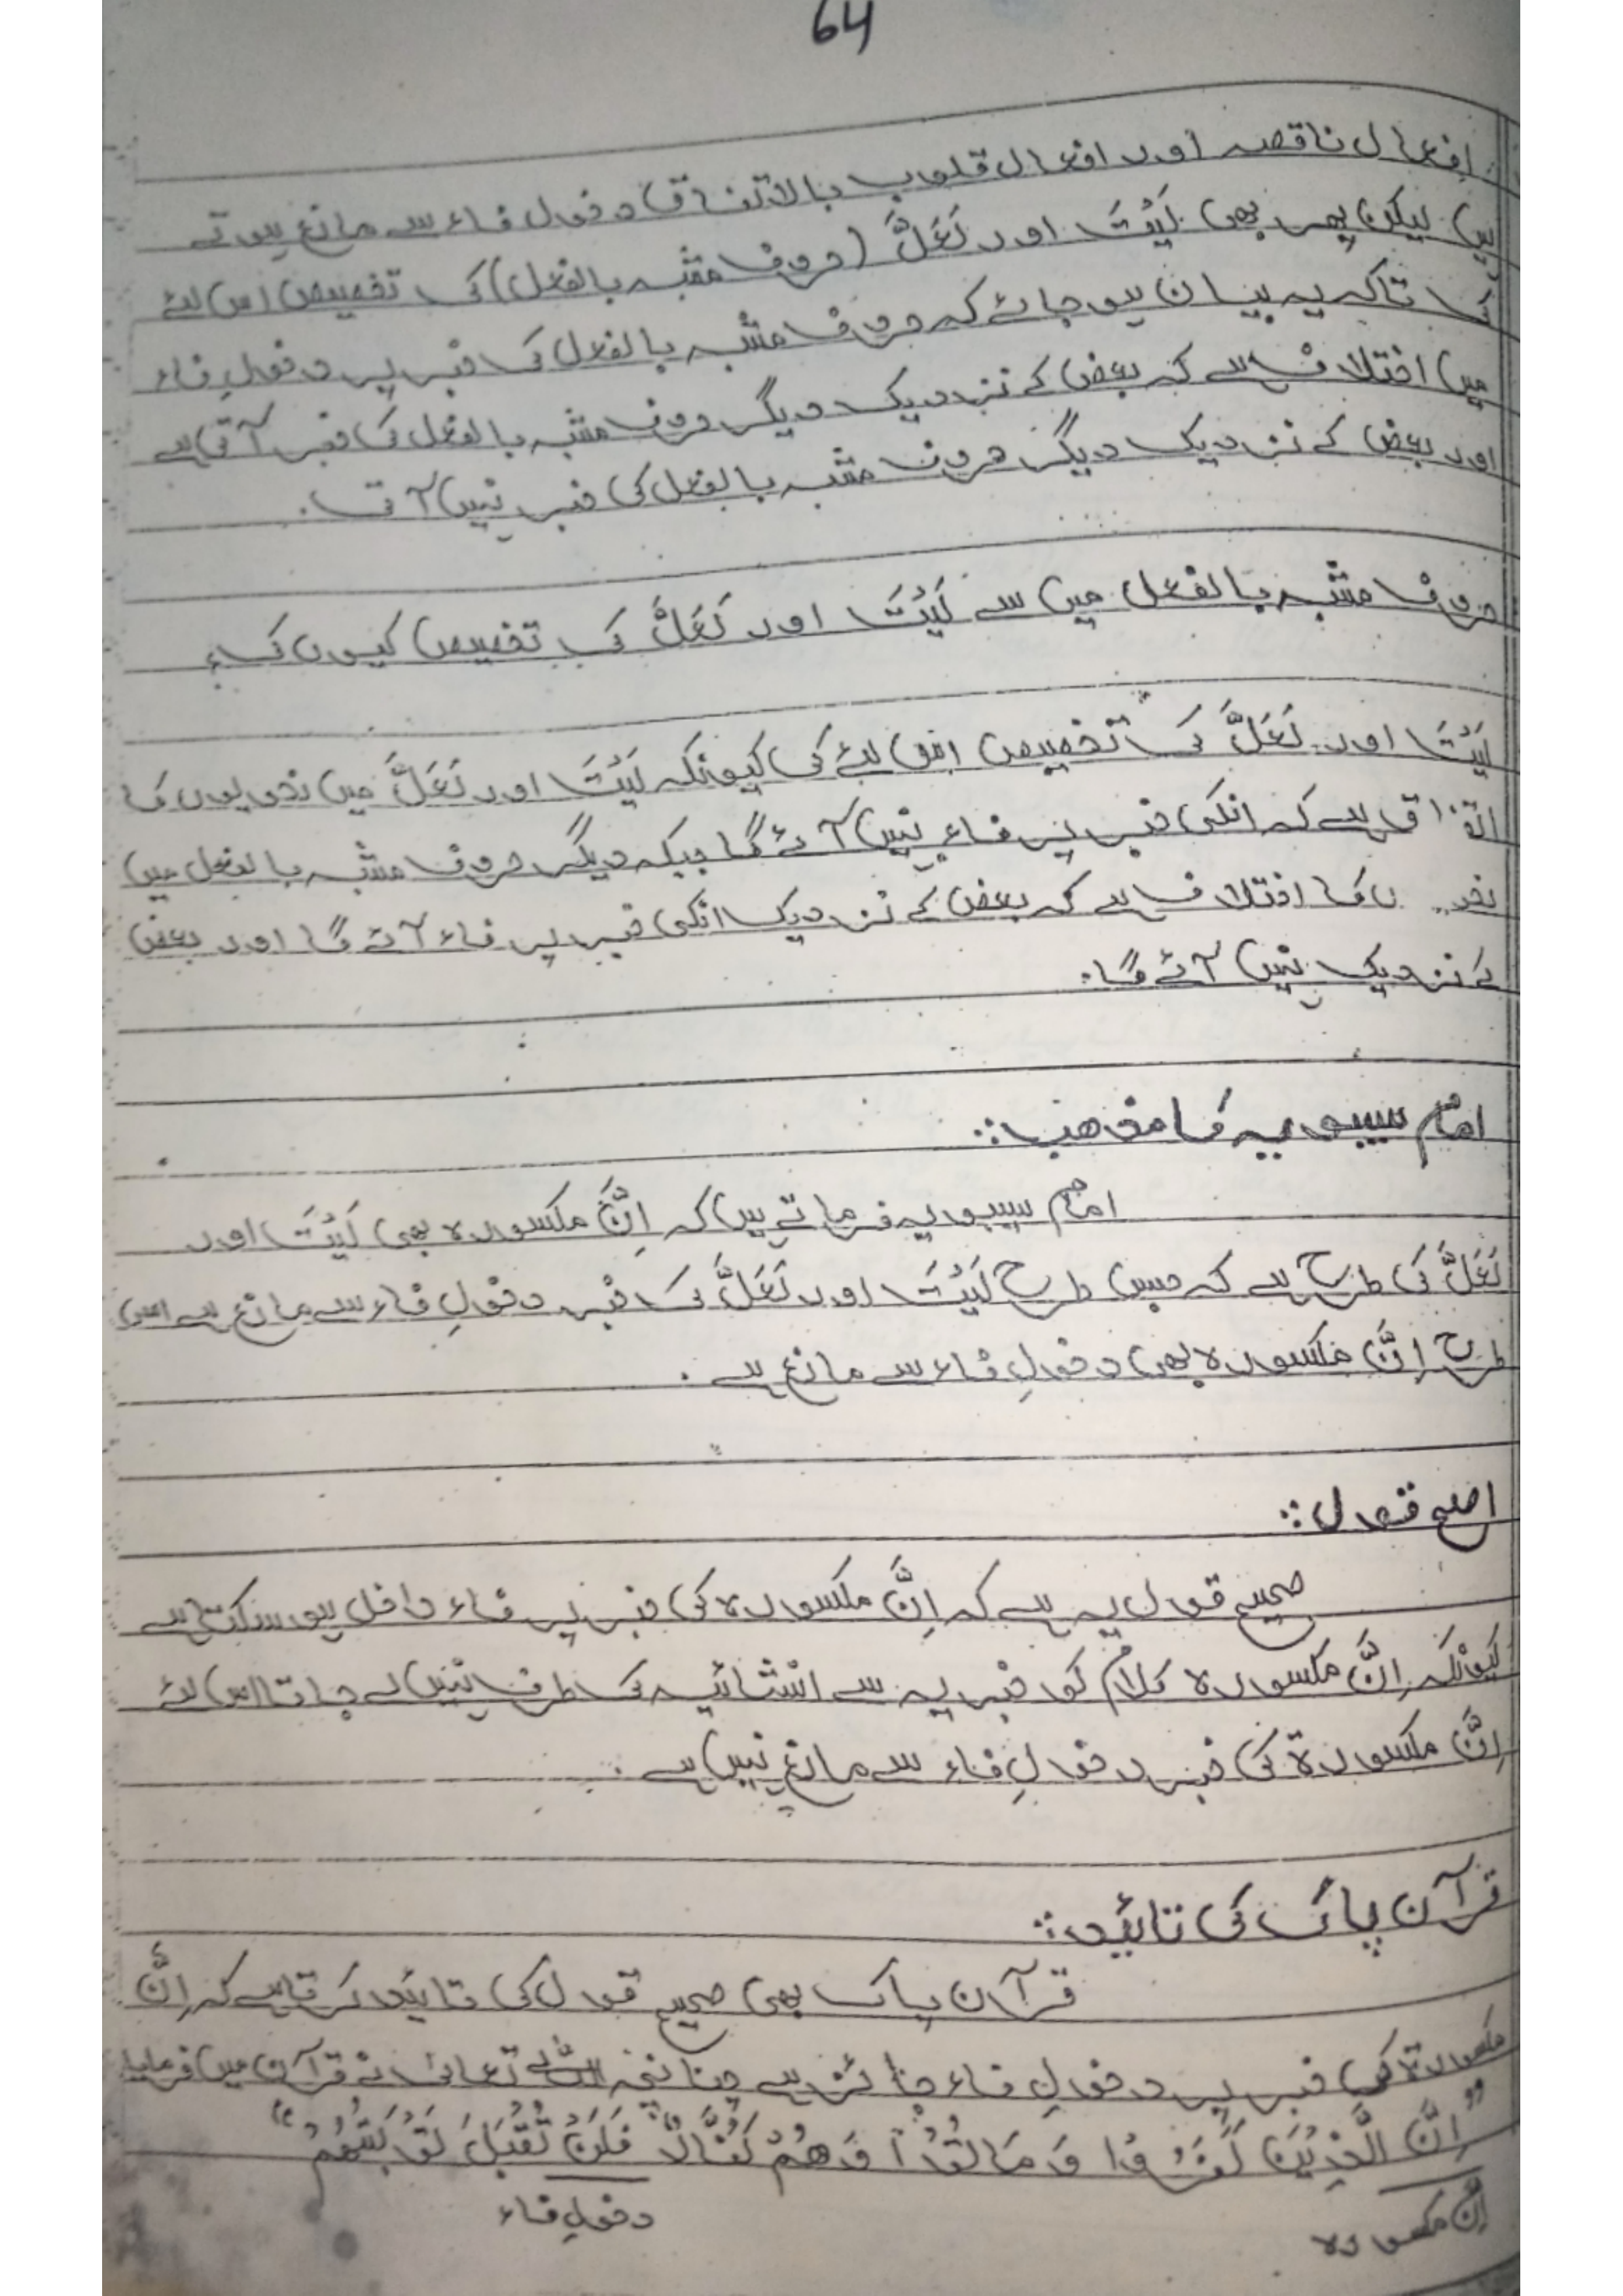 64
افعال ناقصہ اور افعال قلوب بالاتفاق دخول فاء سے مانع ہوتے
ہیں لیکن پھر بھی لَیْتَ اور لَعَلَّ (حروف مشبہ بالفعل) کی تخصیص اس لئے
کی تاکہ یہ بیان ہو جائے کہ حروف مشبہ بالفعل کی خبر پر دخولِ فاء
میں اختلاف ہے کہ بعض کے نزدیک دیگر حروف مشبہ بالفعل کی خبر آتی ہے
اور بعض کے نزدیک دیگر حروف مشبہ بالفعل کی خبر نہیں آتی۔
حروف مشبہ بالفعل میں سے لَیْتَ اور لَعَلَّ کی تخصیص کیوں کی؟
لَیْتَ اور لَعَلَّ کی تخصیص اس لئے کی کیونکہ لَیْتَ اور لَعَلَّ میں نحویوں کا
اتفاق ہے کہ انکی خبر پر فاء نہیں آئے گا جبکہ دیگر حروف مشبہ بالفعل میں
کا اختلاف ہے کہ بعض کے نزدیک انکی خبر پر فاء آئے گا اور بعض
کے نزدیک نہیں آئے گا۔
امام سیبویہ کا مذھب::
امام سیبویہ فرماتے ہیں کہ اِنَّ مکسورہ بھی لَیْتَ اور
لَعَلَّ کی طرح ہے کہ جس طرح لَیْتَ اور لَعَلَّ کی خبر دخولِ فاء سے مانع ہے اسی
طرح اِنَّ مکسورہ بھی دخولِ فاء سے مانع ہے۔
اصح قول::
صحیح قول یہ ہے کہ اِنَّ مکسورہ کی خبر پر فاء داخل ہو سکتا ہے
کیونکہ اِنَّ مکسورہ کلام کو خبریہ سے انشائیہ کی طرف نہیں لے جاتا اس لئے
اِنَّ مکسورۃ کی خبر دخولِ فاء سے مانع نہیں ہے۔
قرآن پاک کی تائید::
قرآن پاک بھی صحیح قول کی تائید کرتا ہے کہ اِنَّ
مکسورۃ کی خبر پر دخولِ فاء جائز ہے چنانچہ اللہ تعالیٰ نے قرآن میں فرمایا
"اِنَّ الَّذِیْنَ کَفَرُوْا وَ مَاتُوْا وَ ھُمْ کُفَّارٌ فَلَنْ تُقْبَلَ تَوْبَتُھُمْ"
اِنَّ مکسورہ دخولِ فاء